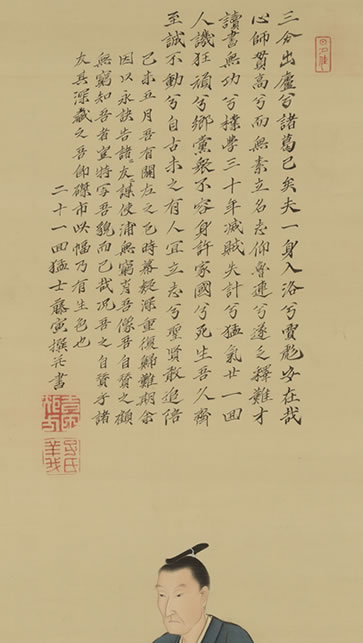 三分出廬兮諸葛已矣夫一身入洛兮賈彪安在哉
心師貫高兮而無素立名志仰魯連兮遂乏釋難才
讀書無功兮樸學三十年滅賊失計兮猛氣廿一回
人譏狂頑兮鄉黨衆不容身許家國兮死生吾久齊
至誠不動兮自古未之有人宜立志兮聖賢敢追陪
己未五月吾有關左之厄時幕疑深重復歸難期余
因以永訣告諸〻友〻謀使浦無窮肖吾像吾自贊之顧
無窮知吾者豈特寫吾貌而已哉況吾之自贊乎諸
友其深藏之吾即磔市此幅乃有生色也
二十一回猛士藤寅撰并書